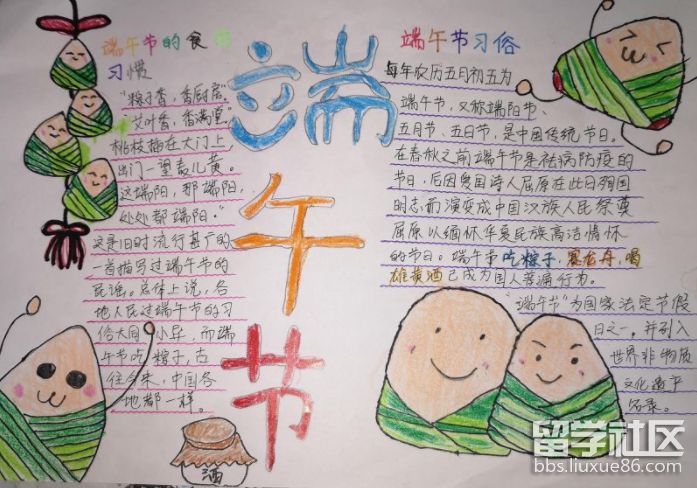 端午节的食
习惯
"粽子香，香厨房。
艾叶香，香满堂。
桃枝插在大门上，
出门一望麦儿黄。
这端阳，那端阳，
处处都端阳。"
这是旧时流行甚广的
一首描写过端午节的
民谣。总体上说，各
地人民过端午节的习
俗大同小异，而端
午节吃粽子，古
往今来，中国各
地都一样。
端
午
节
酒
端午节习俗
每年农历五月初五为
端午节，又称端阳节、
五月节、五日节，是中国传统节日，
在春秋之前端午节是祛病防疫的
节日，后因爱国诗人屈原在此日殉国
明志而演变成中国汉族人民祭奠
屈原以缅怀华夏民族高洁情怀
的节日。端午节吃粽子，赛龙舟，喝
雄黄酒已成为国人普通行为。
"端午节"为国家法定节假
日之一，并列入
世界非物质
文化遗产
名录。
留学社区
bbs.liuxue86.com